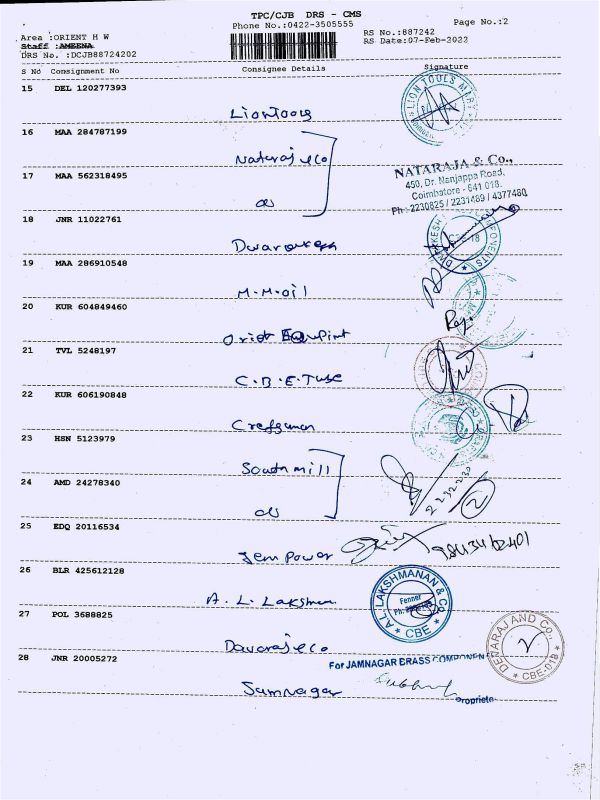 TPC/CJB DRS - CMS
Phone No.:0422-3505555
Page No.:2
Area :ORIENT H W
RS No.:887242
Staff :AMEENA
RS Date:07-Feb-2022
DRS No. :DCJB88724202
S No Consignment No Consignee Details Signature
15 DEL 120277393
LionTools
LION TOOLS MART
16 MAA 284787199
Nataraj & Co
17 MAA 562318495
NATARAJA & Co.,
450, Dr. Nanjappa Road,
Coimbatore - 641 018.
Ph : 2230825 / 2231489 / 4377480
18 JNR 11022761
19 MAA 286910548
M.M.oil
20 KUR 604849460
21 TVL 5248197
C.B.E.Tube
22 KUR 606190848
23 HSN 5123979
South mill
24 AMD 24278340
25 EDQ 20116534
Jem Power
26 BLR 425612128
A. L. Lakshman
A.L. LAKSHMANAN & Co.
Fenner
CBE
27 POL 3688825
DEVARAJ AND Co.
CBE-018
28 JNR 20005272
For JAMNAGAR BRASS COMPONENTS
Jamnagar